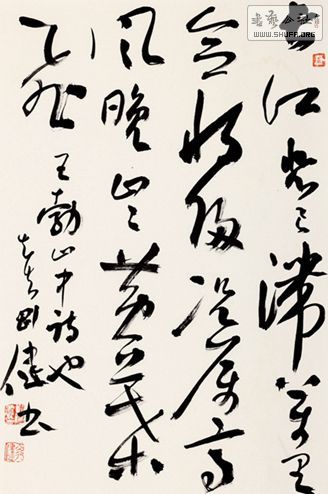 書藝公社
WWW.SHUFA.ORG
長江悲已滯萬里
念將歸況屬高
風晚山山黄葉
飛
王勃山中詩也
書